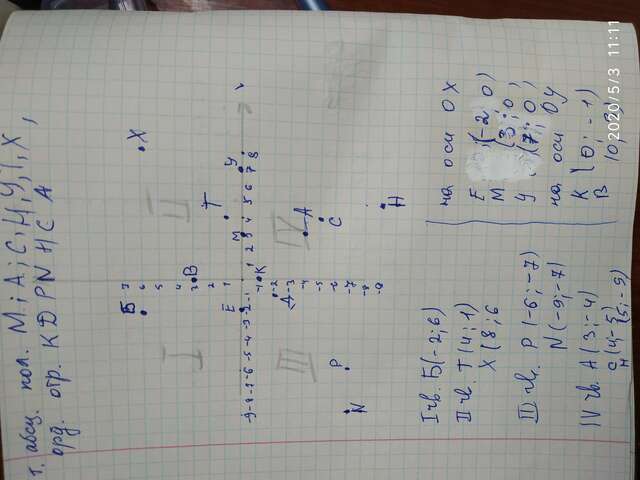 т. абсц. пол. М; А; С; Н; У; Т, Х,
орд. отр. К Д Р N Н С А
I II III IV
Б Х В Т У М А С Н Е К Д Р N
I чв. Б(-2; 6)
II чв Т(4; 1)
Х(8; 6
III чв. Р(-6; -7)
N(-9; -7)
IV чв. А(3; -4)
С(4; -5)
Н (5; -9)
на оси ОХ
Е (-2; 0)
М (3; 0)
У (7; 0)
на оси ОУ
К (0; -1)
В
2020/5/3 11:11